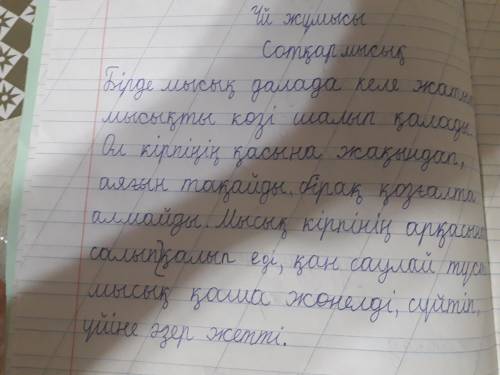 Үй жұмысы
Сотқармысық
Бірде мысық далада келе
мысықты көзі шалып қалады.
Ол кірпінің қасына жақындап,
аяғын тақайды. бірақ қозғалта
алмайды. Мысық кірпінің
салып қалып еді, қан саулай
мысық қаша жөнелді, сүйтіп,
үйіне әзер жетті.